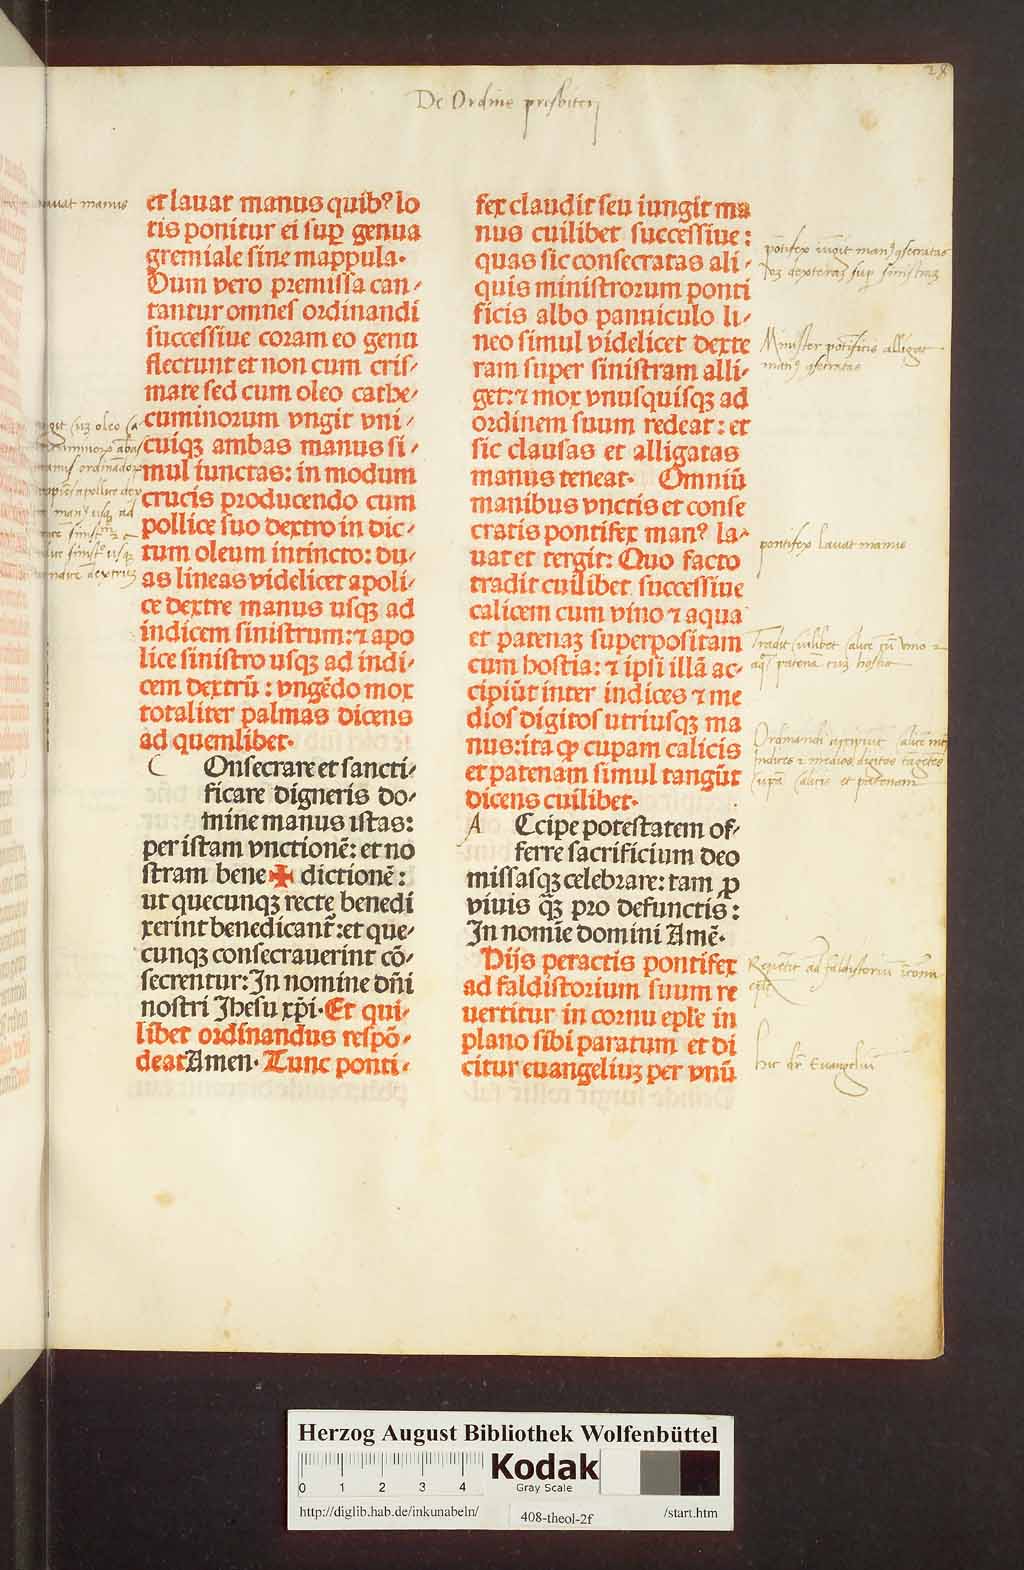 28
De Ordine presbiterj
lavat manus
et lauat manus quib⁹ lo
tis ponitur ei sup̱ genua
gremiale sine mappula.
Dum vero premissa can⸗
tantur omnes ordinandi
successiue coram eo genu
flectunt et non cum cris⸗
mate sed cum oleo cathe⸗
cuminorum vngit vni⸗
cuiqꝫ ambas manus si⸗
mul iunctas: in modum
crucis producendo cum
pollice suo dextro in dic⸗
tum oleum intincto: du⸗
as lineas videlicet a poli⸗
ce dextre manus usqꝫ ad
indicem sinistrum: ⁊ a po
lice sinistro usqꝫ ad indi⸗
cem dextrū: vngēdo mox
totaliter palmas dicens
ad quemlibet.
C Onsecrare et sancti⸗
ficare digneris do⸗
mine manus istas:
per istam vnctionē: et no
stram bene✠dictionē:
ut quecunqꝫ recte benedi
xerint benedicant̃: et que⸗
cunqꝫ consecrauerint cō⸗
secrentur: In nomine dñi
nostri Jhesu xp̄i. Et qui⸗
libet ordinandus respō⸗
deat Amen. Tunc ponti⸗
fex claudit seu iungit ma
nus cuilibet successiue:
quas sic consecratas ali⸗
quis ministrorum ponti
ficis albo panniculo li⸗
neo simul videlicet dexte
ram super sinistram alli⸗
get: ⁊ mox vnusquisqꝫ ad
ordinem suum redeat: et
sic clausas et alligatas
manus teneat. Omniū
manibus vnctis et conse
cratis pontifex man⁹ la⸗
uat et tergit: Quo facto
tradit cuilibet successiue
calicem cum vino ⁊ aqua
et patenaꝫ superpositam
cum hostia: ⁊ ipsi illā ac⸗
cipiūt inter indices ⁊ me
dios digitos utriusqꝫ ma
nus: ita ꝙ cupam calicis
et patenam simul tangūt
dicens cuilibet.
A Ccipe potestatem of⸗
ferre sacrificium deo
missasqꝫ celebrare: tam ꝓ
viuis q̄ꝫ pro defunctis:
In nomīe domini Amē.
Dijs peractis pontifex
ad faldistorium suum re
uertitur in cornu ep̄le in
plano sibi paratum et di
citur euangeliuꝫ per vnū
Minister pontificis alligat
pontifex lavat manus
Herzog August Bibliothek Wolfenbüttel
0 1 2 3 4
Kodak
Gray Scale
http://diglib.hab.de/inkunabeln/
408-theol-2f
/start.htm